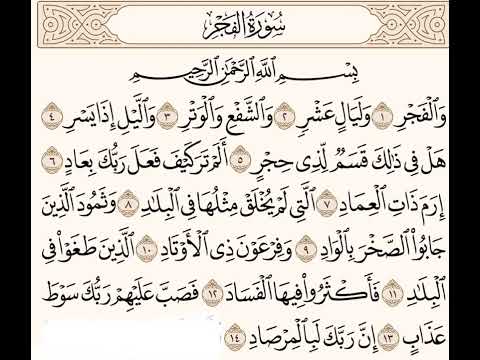 سُورَةُ الفَجْرِ
بِسْمِ اللَّهِ الرَّحْمَٰنِ الرَّحِيمِ
وَالْفَجْرِ ١ وَلَيَالٍ عَشْرٍ ٢ وَالشَّفْعِ وَالْوَتْرِ ٣ وَاللَّيْلِ إِذَا يَسْرِ ٤
هَلْ فِي ذَٰلِكَ قَسَمٌ لِّذِي حِجْرٍ ٥ أَلَمْ تَرَ كَيْفَ فَعَلَ رَبُّكَ بِعَادٍ ٦
إِرَمَ ذَاتِ الْعِمَادِ ٧ الَّتِي لَمْ يُخْلَقْ مِثْلُهَا فِي الْبِلَادِ ٨ وَثَمُودَ الَّذِينَ
جَابُوا الصَّخْرَ بِالْوَادِ ٩ وَفِرْعَوْنَ ذِي الْأَوْتَادِ ١٠ الَّذِينَ طَغَوْا فِي
الْبِلَادِ ١١ فَأَكْثَرُوا فِيهَا الْفَسَادَ ١٢ فَصَبَّ عَلَيْهِمْ رَبُّكَ سَوْطَ
عَذَابٍ ١٣ إِنَّ رَبَّكَ لَبِالْمِرْصَادِ ١٤